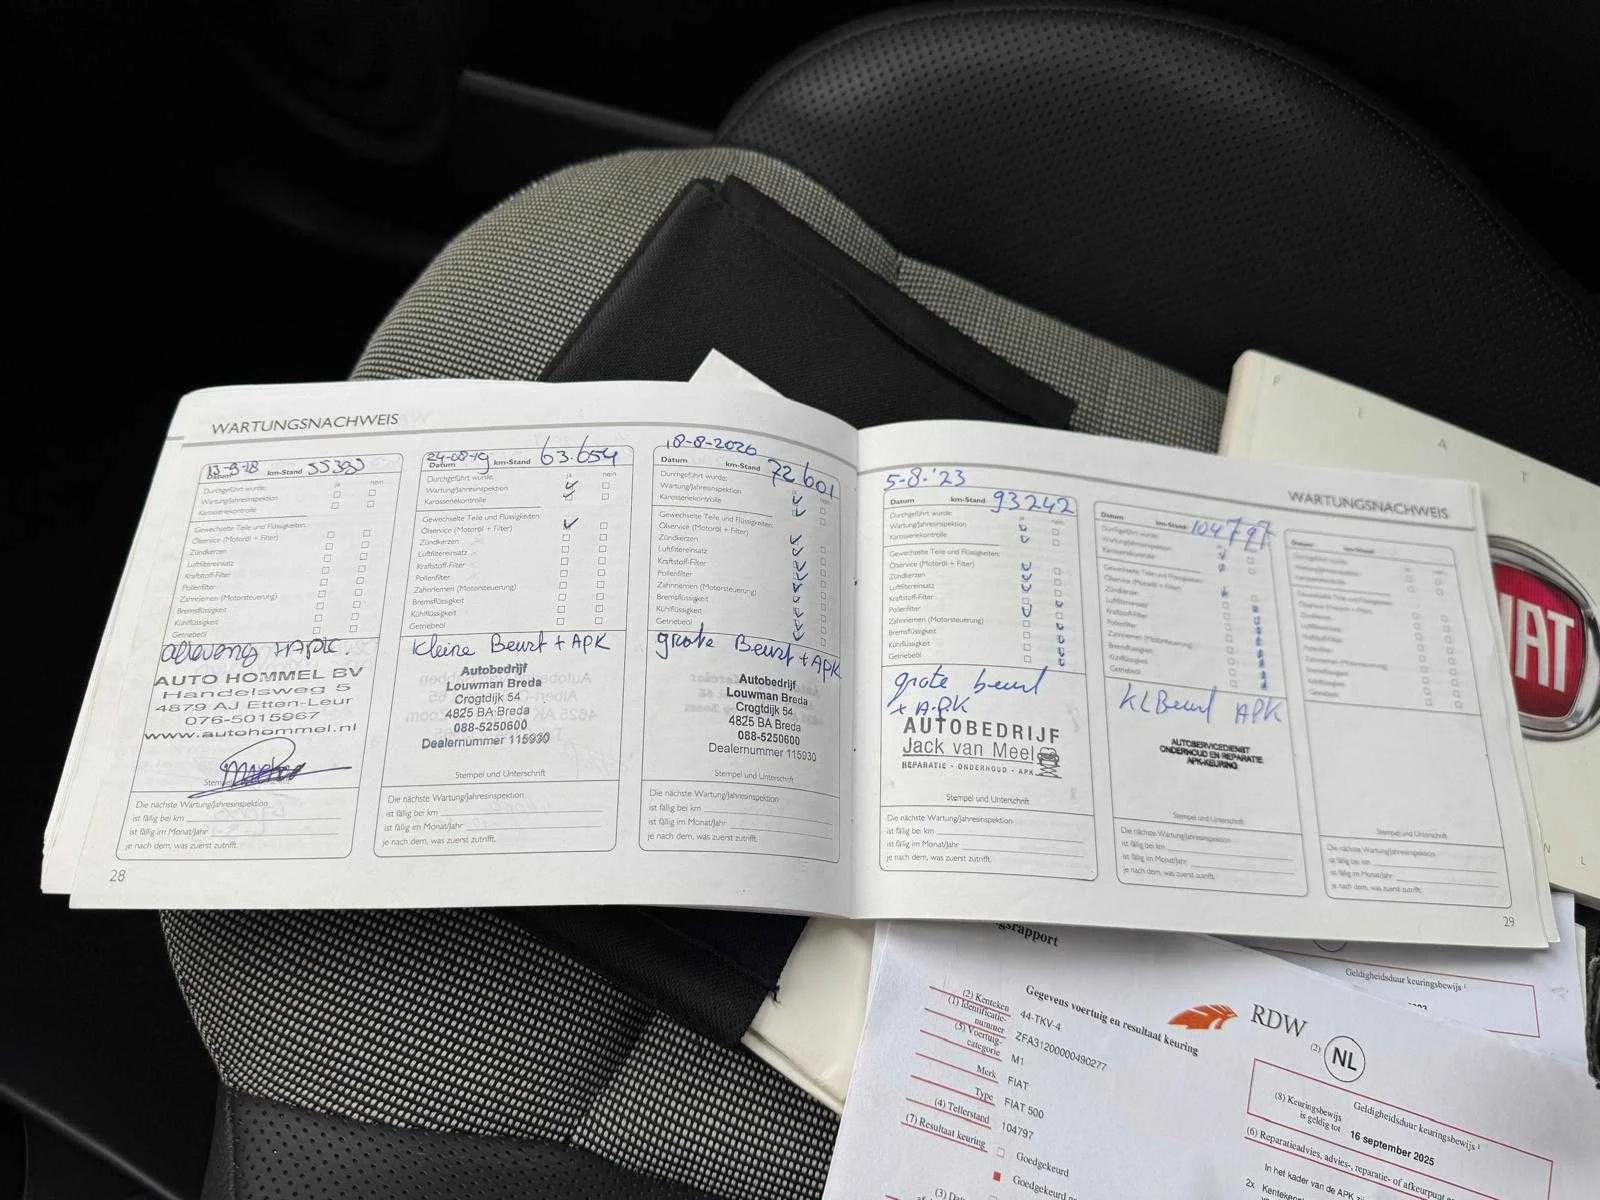 WARTUNGSNACHWEIS
13-8-18
Datum km-Stand 55393
ja nein
Durchgeführt wurde:
Wartung/Jahresinspektion
Karosseriekontrolle
Gewechselte Teile und Flüssigkeiten:
Ölservice (Motoröl + Filter)
Zündkerzen
Luftfiltereinsatz
Kraftstoff-Filter
Pollenfilter
Zahnriemen (Motorsteuerung)
Bremsflüssigkeit
Kühlflüssigkeit
Getriebeöl
aflevering + APK.
AUTO HOMMEL BV
Handelsweg 5
4879 AJ Etten-Leur
076-5015967
www.autohommel.nl
Die nächste Wartung/Jahresinspektion
ist fällig bei km
ist fällig im Monat/Jahr
je nach dem, was zuerst zutrifft.
28
24-08-19
Datum km-Stand 63.654
ja nein
Durchgeführt wurde:
Wartung/Jahresinspektion
Karosseriekontrolle
Gewechselte Teile und Flüssigkeiten:
Ölservice (Motoröl + Filter)
Zündkerzen
Luftfiltereinsatz
Kraftstoff-Filter
Pollenfilter
Zahnriemen (Motorsteuerung)
Bremsflüssigkeit
Kühlflüssigkeit
Getriebeöl
kleine Beurt + APK
Autobedrijf
Louwman Breda
Crogtdijk 54
4825 BA Breda
088-5250600
Dealernummer 115930
Stempel und Unterschrift
Die nächste Wartung/Jahresinspektion
ist fällig bei km
ist fällig im Monat/Jahr
je nach dem, was zuerst zutrifft.
18-8-2020
Datum km-Stand 72601
Durchgeführt wurde:
Wartung/Jahresinspektion
Karosseriekontrolle
Gewechselte Teile und Flüssigkeiten:
Ölservice (Motoröl + Filter)
Zündkerzen
Luftfiltereinsatz
Kraftstoff-Filter
Pollenfilter
Zahnriemen (Motorsteuerung)
Bremsflüssigkeit
Kühlflüssigkeit
Getriebeöl
grote Beurt + APK
Autobedrijf
Louwman Breda
Crogtdijk 54
4825 BA Breda
088-5250600
Dealernummer 115930
Stempel und Unterschrift
Die nächste Wartung/Jahresinspektion
ist fällig bei km
ist fällig im Monat/Jahr
je nach dem, was zuerst zutrifft.
WARTUNGSNACHWEIS
5-8-'23
Datum km-Stand 93242
Durchgeführt wurde:
Wartung/Jahresinspektion
Karosseriekontrolle
Gewechselte Teile und Flüssigkeiten:
Ölservice (Motoröl + Filter)
Zündkerzen
Luftfiltereinsatz
Kraftstoff-Filter
Pollenfilter
Zahnriemen (Motorsteuerung)
Bremsflüssigkeit
Kühlflüssigkeit
Getriebeöl
grote beurt
+ A.P.K
AUTOBEDRIJF
Jack van Meel
REPARATIE - ONDERHOUD - APK
Stempel und Unterschrift
Die nächste Wartung/Jahresinspektion
ist fällig bei km
ist fällig im Monat/Jahr
je nach dem, was zuerst zutrifft.
Datum km-Stand 104797
Durchgeführt wurde:
Wartung/Jahresinspektion
Karosseriekontrolle
Gewechselte Teile und Flüssigkeiten:
Ölservice (Motoröl + Filter)
Zündkerzen
Luftfiltereinsatz
Kraftstoff-Filter
Pollenfilter
Zahnriemen (Motorsteuerung)
Bremsflüssigkeit
Kühlflüssigkeit
Getriebeöl
KL Beurt APK
AUTOSERVICEDIENST
ONDERHOUD EN REPARATIE
APK-KEURING
Stempel und Unterschrift
Die nächste Wartung/Jahresinspektion
ist fällig bei km
ist fällig im Monat/Jahr
je nach dem, was zuerst zutrifft.
Datum km-Stand
Stempel und Unterschrift
Die nächste Wartung/Jahresinspektion
ist fällig bei km
ist fällig im Monat/Jahr
je nach dem, was zuerst zutrifft.
29
F E A T
N L
Geldigheidsduur keuringsbewijs 1
gsrapport
Gegevens voertuig en resultaat keuring
RDW
(2) NL
(2) Kenteken 44-TKV-4
(1) Identificatie-
nummer ZFA31200000490277
(5) Voertuig-
categorie M1
Merk FIAT
Type FIAT 500
(4) Tellerstand 104797
(7) Resultaat keuring
Goedgekeurd
Goedgekeurd
Geldigheidsduur keuringsbewijs 1
(8) Keuringsbewijs
is geldig tot 16 september 2025
(6) Reparatieadvies, advies-, reparatie- of afkeurpunt
In het kader van de APK
2x